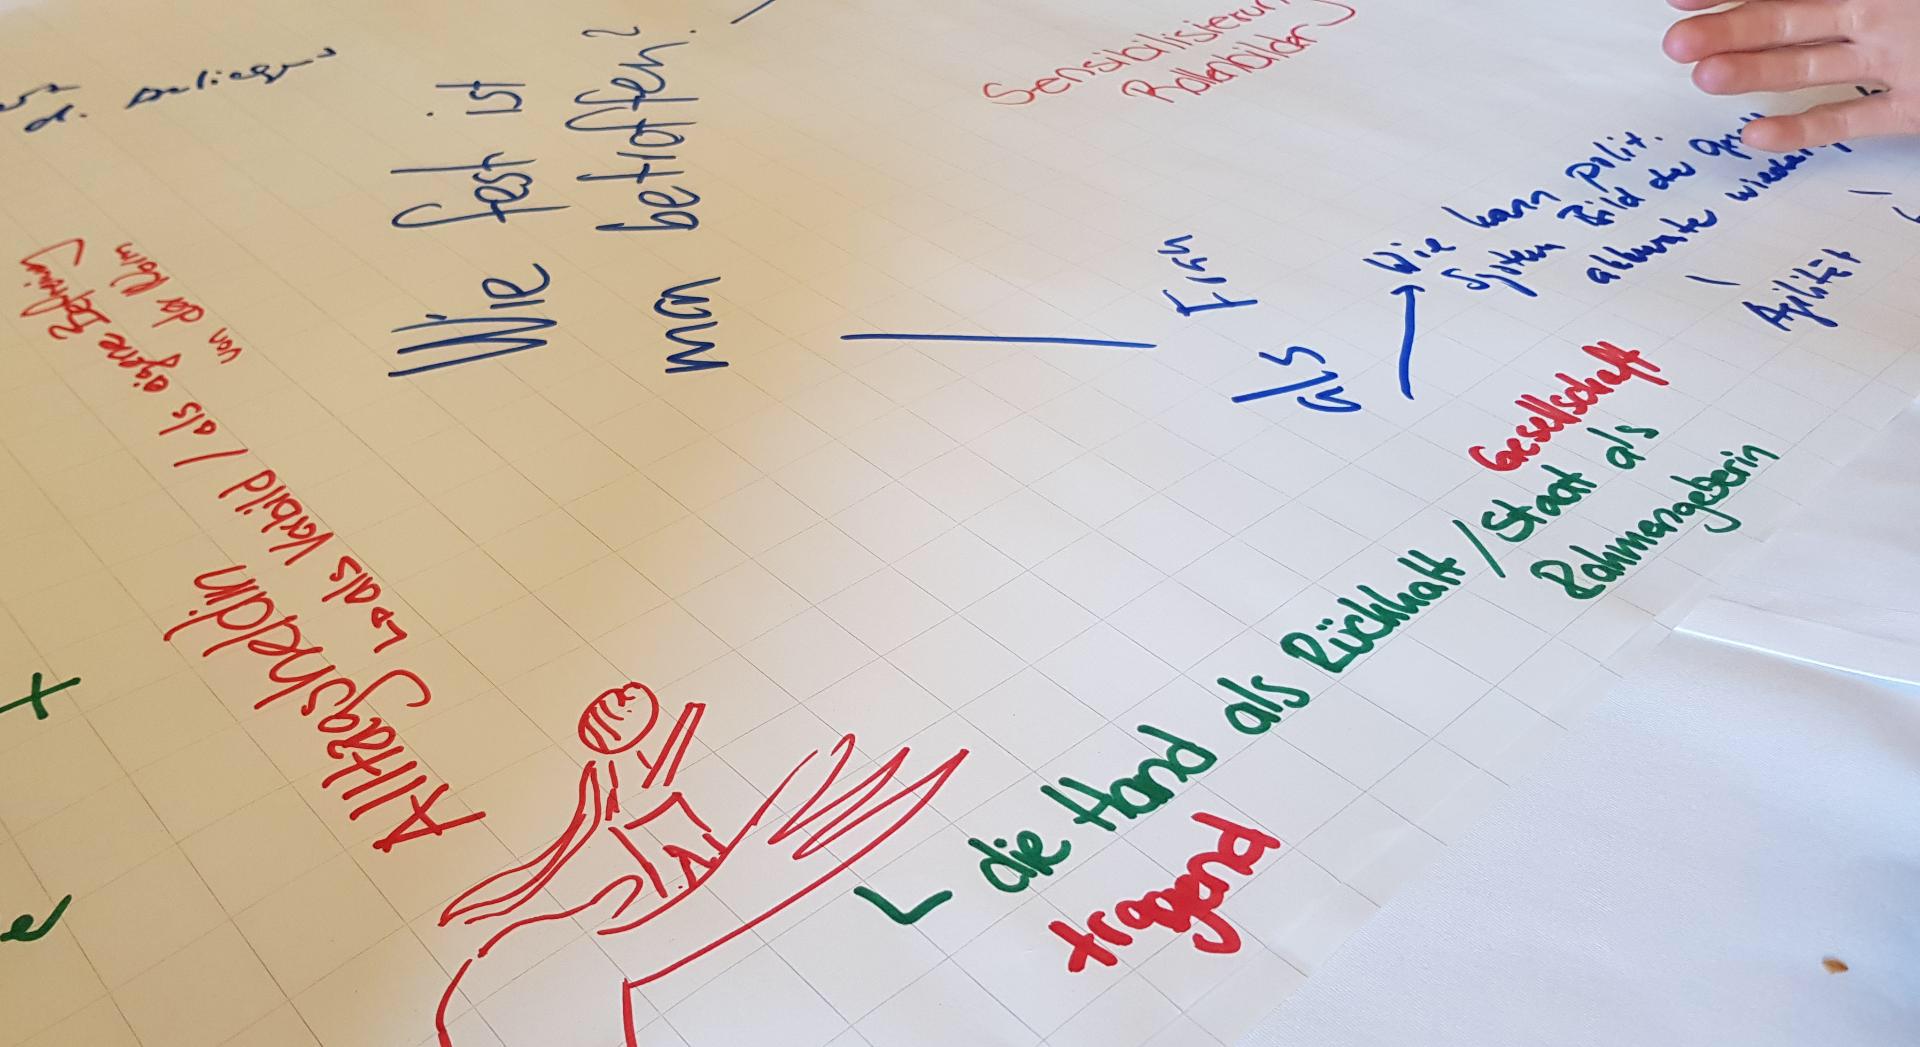 Sensibilisierung
Rollenbilder
Wie fest ist
man betroffen?
als
Frau
Wie kann polit.
System Bild der
akkurater
Agilität
Alltagsheldin
als Vorbild / als eigene
von der
Gesellschaft
die Hand als Rückhalt / Staat als
Rahmengeberin
tragend